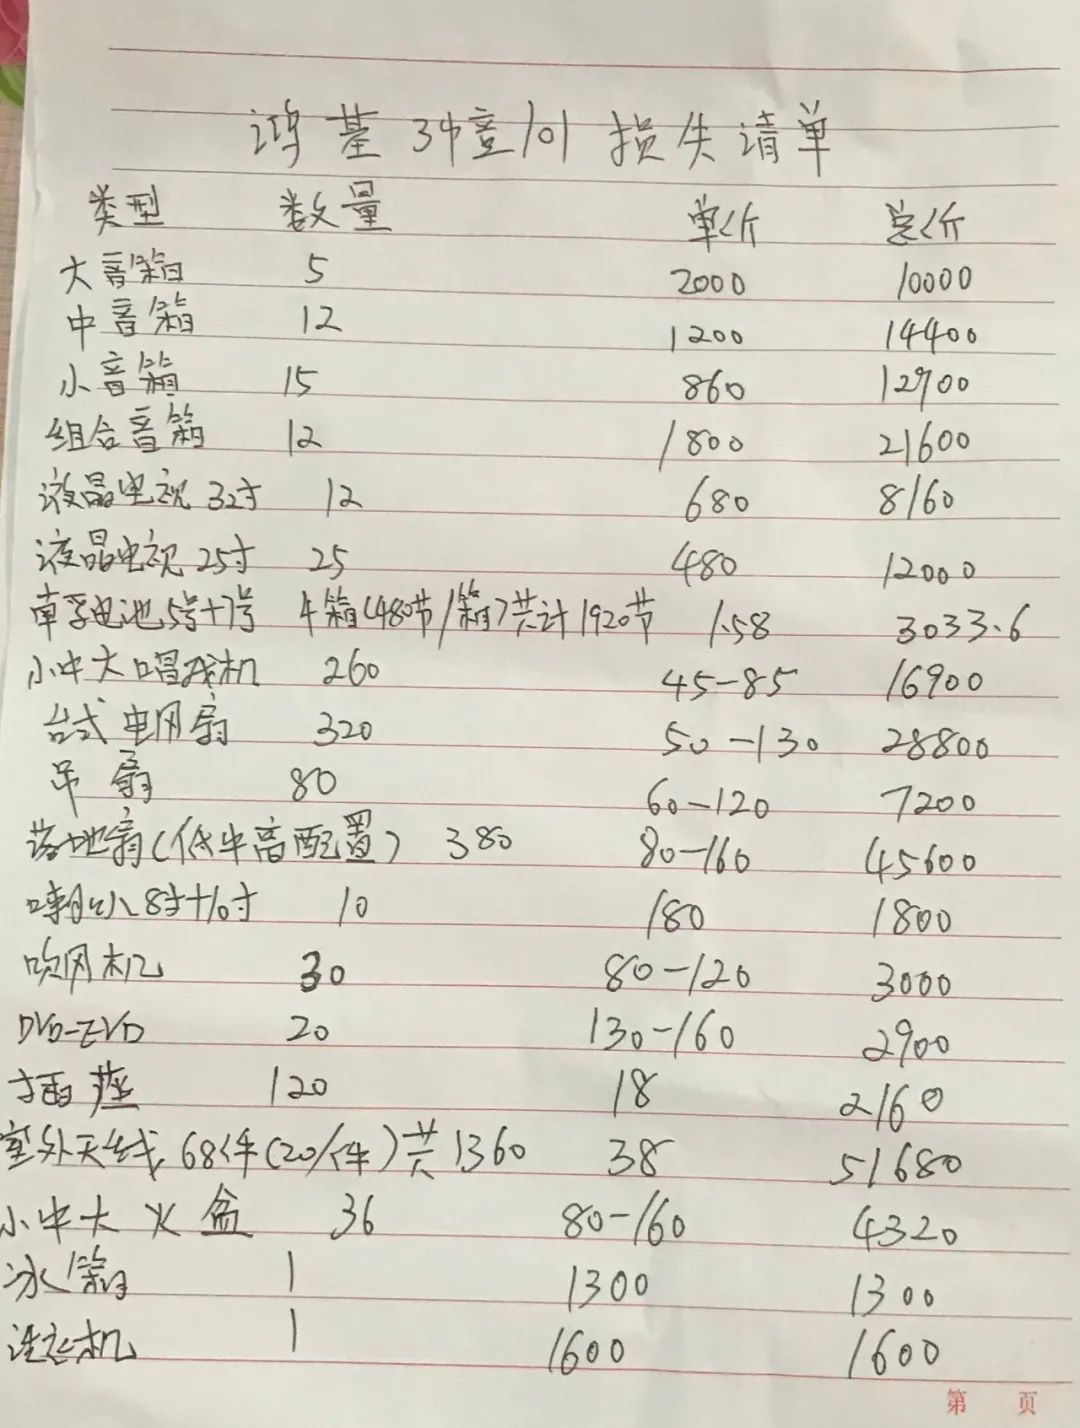 鸿基34童101 损失清单
类型 数量 单价 总价
大音箱 5 2000 10000
中音箱 12 1200 14400
小音箱 15 860 12900
组合音箱 12 1800 21600
液晶电视 32寸 12 680 8160
液晶电视 25寸 25 480 12000
南孚电池5号+7号 4箱(480节/箱)共计1920节 1.58 3033.6
小中大唱戏机 260 45-85 16900
台式电风扇 320 50-130 28800
吊扇 80 60-120 7200
落地扇(低中高配置) 380 80-160 45600
喇叭8寸+10寸 10 180 1800
吹风机 30 80-120 3000
DVD-EVD 20 130-160 2900
插座 120 18 2160
室外天线 68件(20/件)共1360 38 51680
小中大火盆 36 80-160 4320
冰箱 1 1300 1300
洗衣机 1 1600 1600
第 页